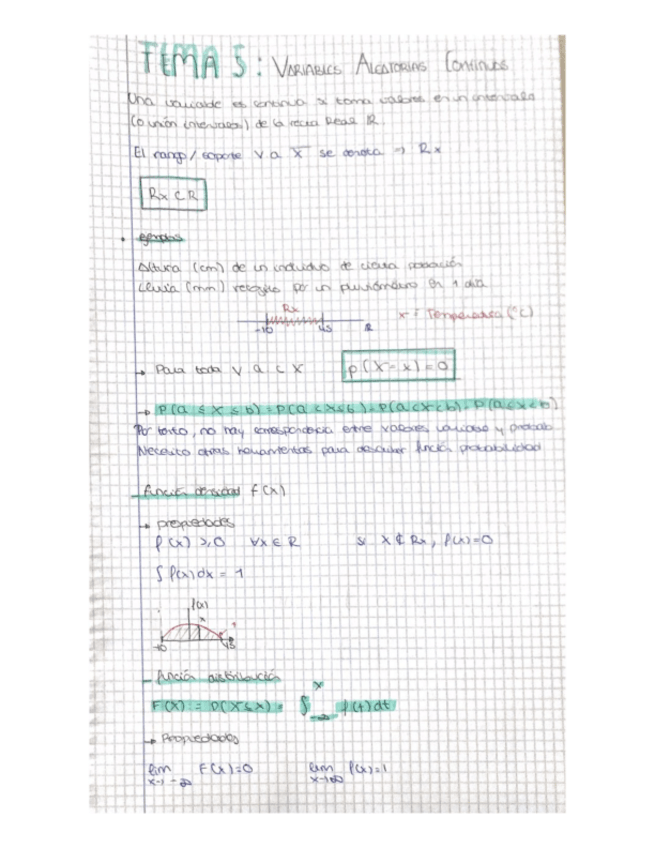 TEMA 5: VARIABLES ALEATORIAS CONTINUAS
Una variable es continua si toma valores en un intervalo
(o unión intervalos) de la recta Real R.
El rango / soporte v a X se denota → Rx
Rx ⊂ R
• ejemplos
Altura (cm) de un individuo de cierta población
Lluvia (mm) recogido por un pluviómetro en 1 día
Rx
-10 45 R x = Temperatura (°C)
→ Para toda v a c X p(X=x)=0
→ P(a ≤ X ≤ b) = P(a < X ≤ b) = P(a < X < b) = P(a ≤ X < b)
Por tanto, no hay correspondencia entre valores variable y probab
Necesito otras herramientas para describir función probabilidad
- función densidad f(x)
→ propiedades
f(x) ≥ 0 ∀x ∈ R si x ∉ Rx, f(x)=0
∫ f(x) dx = 1
f(x)
x
-10 45
- función distribución
F(x) = P(X ≤ x) = ∫ x -∞ f(t) dt
→ Propiedades
lim F(x)=0 lim f(x)=1
x→-∞ x→+∞